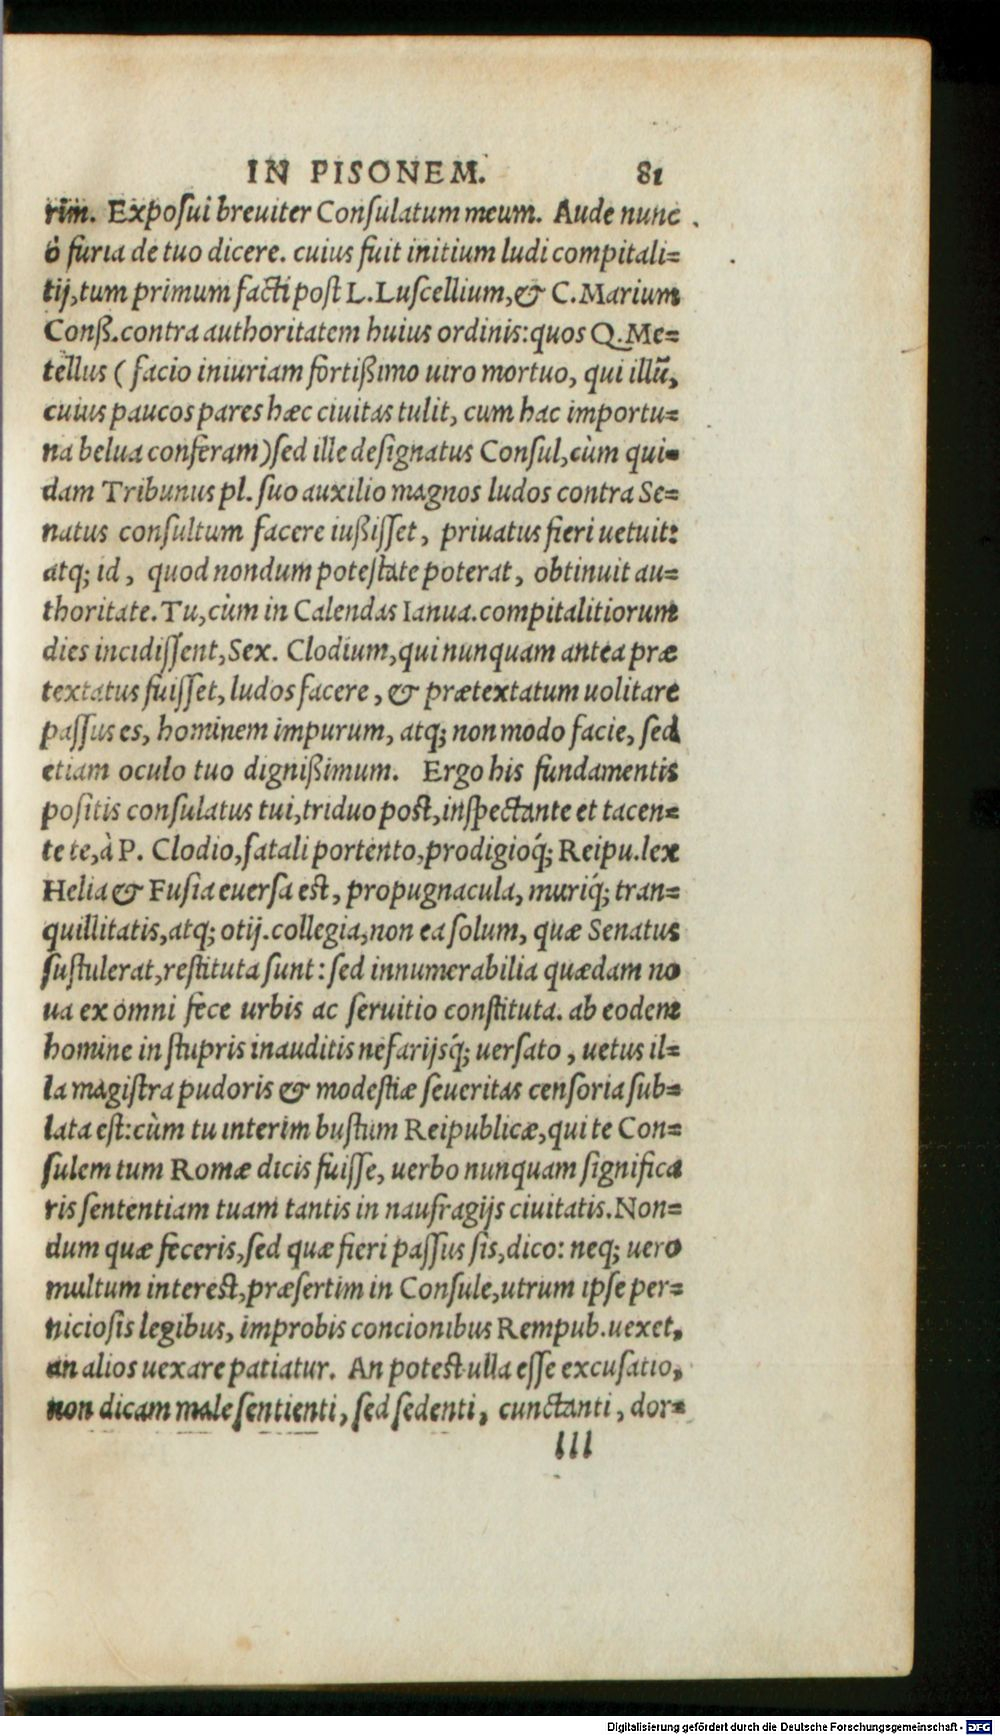 IN PISONEM. 81
rim. Exposui breuiter Consulatum meum. Aude nunc
ô furia de tuo dicere. cuius fuit initium ludi compitali=
tij, tum primum facti post L. Luscellium, & C. Marium
Conß. contra authoritatem huius ordinis: quos Q. Me=
tellus ( facio iniuriam fortißimo uiro mortuo, qui illũ,
cuius paucos pares hæc ciuitas tulit, cum hac importu=
na belua conferam) sed ille designatus Consul, cùm qui=
dam Tribunus pl. suo auxilio magnos ludos contra Se=
natus consultum facere iußisset, priuatus fieri uetuit:
atq; id, quod nondum potestate poterat, obtinuit au=
thoritate. Tu, cùm in Calendas Ianua. compitalitiorum
dies incidissent, Sex. Clodium, qui nunquam antea præ
textatus fuisset, ludos facere, & prætextatum uolitare
passus es, hominem impurum, atq; non modo facie, sed
etiam oculo tuo dignißimum. Ergo his fundamentis
positis consulatus tui, triduo post, inspectante et tacen=
te te, à P. Clodio, fatali portento, prodigioq́; Reipu. lex
Helia & Fusia euersa est, propugnacula, muriq́; tran=
quillitatis, atq; otij. collegia, non ea solum, quæ Senatus
sustulerat, restituta sunt: sed innumerabilia quædam no
ua ex omni fece urbis ac seruitio constituta. ab eodem
homine in stupris inauditis nefarijsq́; uersato, uetus il=
la magistra pudoris & modestiæ seueritas censoria sub=
lata est: cùm tu interim bustum Reipublicæ, qui te Con=
sulem tum Romæ dicis fuisse, uerbo nunquam significa
ris sententiam tuam tantis in naufragijs ciuitatis. Non=
dum quæ feceris, sed quæ fieri passus sis, dico: neq; uero
multum interest, præsertim in Consule, utrum ipse per=
niciosis legibus, improbis concionibus Rempub. uexet,
an alios uexare patiatur. An potest ulla esse excusatio,
non dicam male sentienti, sed sedenti, cunctanti, dor=
lll
Digitalisierung gefördert durch die Deutsche Forschungsgemeinschaft - DFG